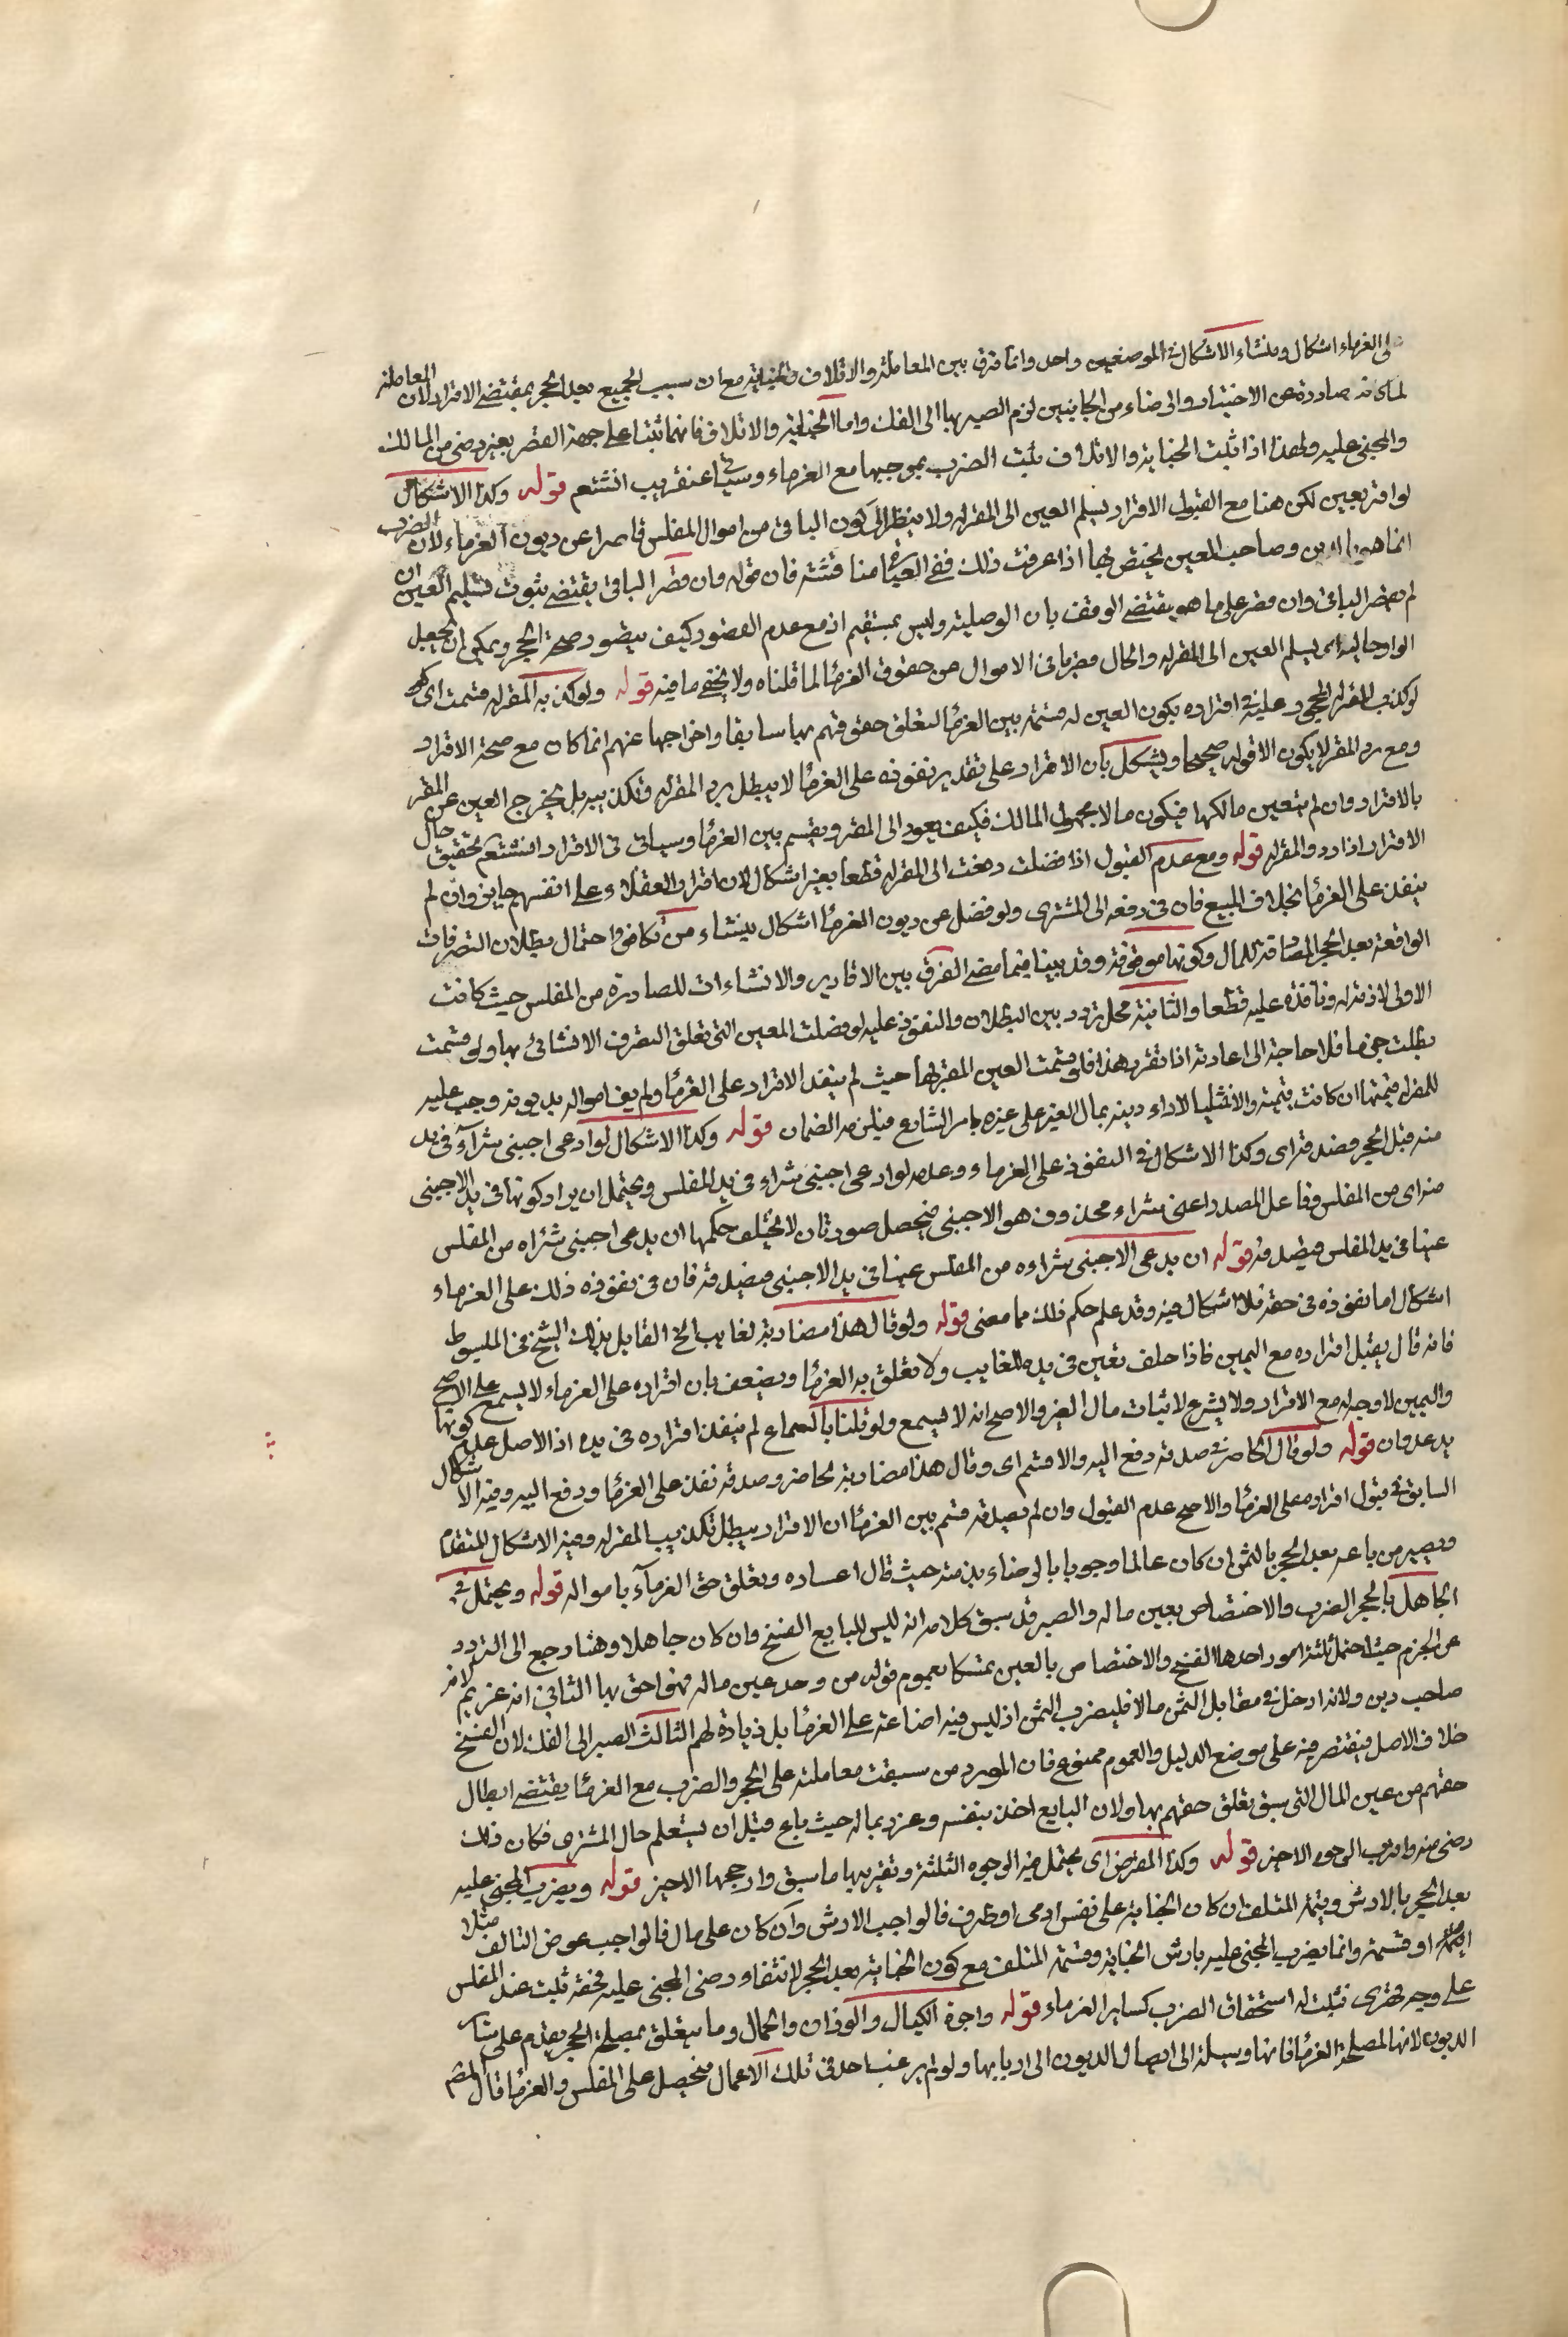 على الغرماء اشكال ومنشاء الاشكال فى الموضعين واحد وانما فرق بين المعاملة والاتلاف والجناية مع ان سبب الجميع بعد الحجر بمقتضى الاقرار لان المعاملة
لما كانت صادرة عن الاختيار والرضاء من الجانبين لزم الصبر بها الى الفك واما الجناية والاتلاف فانهما ثبتا على جهة القهر بغير رضى من المالك
والمجنى عليه ولهذا اذا ثبت الجناية والاتلاف ثبت الضرب بموجبها مع الغرماء وسياتى عنقريب انشتعم قوله وكذا الاشكال
لو اقر بعين لكن هنا مع القبول الاقرار يسلم العين الى المقر له ولا ينظر الى كون الباقى من اموال المفلس قاصرا عن ديون الغرماء لان الضرب
انما هو بالدين وصاحب العين يختص بها اذا عرفت ذلك ففى العبارة مناقشة فان قوله وان قصر الباقى يقتضى ثبوت تسليم العين ان
لم يقصر الباقى وان قصر على ما هو يقتضى الوقف بان الوصلية وليس بمستقيم اذ مع عدم القصور كيف يتصور صحة الحجر ويمكن ان يجعل
الواو حالية اى يسلم العين الى المقر له والحال قصر باقى الاموال من حقوق الغرماء لما قلناه ولا يخفى ما فيه قوله ولو كذبه المقر له قسمت اى
لو كذب المقر له المحجور عليه فى اقراره بكون العين له قسمت بين الغرماء لتعلق حقوقهم بها سابقا واخراجها عنهم انما كان مع صحة الاقرار
ومع رد المقر له لا يكون الاقرار صحيحا ويشكل بان الاقرار على تقدير نفوذه على الغرماء لا يبطل برد المقر له وتكذيبه بل يخرج العين عن المقر
بالاقرار وان لم يتعين مالكها فيكون مالا مجهول المالك فكيف يعود الى المقر ويقسم بين الغرماء وسياتى فى الاقرار انشتعم تحقيق حال
الاقرار اذا رد المقر له قوله ومع عدم القبول اذا فضلت دفعت الى المقر له قطعا بغير اشكال لان اقرار العقلاء على انفسهم جايز وان لم
ينفذ على الغرماء بخلاف المبيع فان فى دفعه الى المشترى ولو فضل عن ديون الغرماء اشكال ينشاء من تكافؤ احتمال بطلان التصرفات
الواقعة بعد الحجر المصادقة للمال وكونها موقوفة وقد بينا فيما مضى الفرق بين الاقارير والانشاءات الصادرة من المفلس حيث كانت
الاولى لازمة له ونافذة عليه قطعا والثانية محل تردد بين البطلان والنفوذ عليه لو فضلت العين التى تعلق التصرف الانشائى بها ولو قسمت
بطلت جزما فلا حاجة الى اعادته اذا تقرر هذا فلو قسمت العين المقر بها حيث لم ينفذ الاقرار على الغرماء ولم يف امواله بديونه وجب عليه
للمقر له قيمتها ان كانت قيمية والا مثلها لاداء دينه بمال الغير على غيره بامر الشارع فيلزمه الضمان قوله وكذا الاشكال لو ادعى اجنبى شراء فى يد
منه قبل الحجر فصدقه اى وكذا الاشكال فى النفوذ على الغرماء وعدمه لو ادعى اجنبى شراء فى يد المفلس ويحتمل ان يراد كونها فى يد الاجنبى
منه اى من المفلس وفاعل المصدر اعنى شراء محذوف هو الاجنبى فيحصل صورتان لا يختلف حكمها ان يدعى اجنبى شراءه من المفلس
عينا فى يد المفلس فيصدقه قوله ان يدعى الاجنبى شراءه من المفلس عينا فى يد الاجنبى فيصدقه فان فى نفوذه ذلك على الغرماء
اشكال اما نفوذه فى حقه فلا اشكال فيه وقد علم حكم ذلك مما معنى قوله ولو قال هذا مضاربة لغايب الخ القايل بذلك الشيخ فى المبسوط
فانه قال يقبل اقراره مع اليمين فاذا حلف تعين فى يده للغايب ولا تعلق به الغرماء ويضعف بان اقراره على الغرماء لا يسمع على الاصح
واليمين لا وجه له مع الاقرار ولا يشرع لاثبات مال الغير والاصح انه لا يسمع ولو قلنا بالسماع لم ينفذ اقراره فى يده اذ الاصل عدم كونها
يد عدوان قوله ولو قال لحاضر وصدقه دفع اليه والا قسم اى وقال هذا مضاربة لحاضر وصدقه نفذ على الغرماء ودفع اليه وفيه الاشكال
السابق فى قبول اقراره على الغرماء والاصح عدم القبول وان لم يصدقه قسم بين الغرماء ان الاقرار يبطل بتكذيب المقر له وفيه الاشكال المتقدم
ويصبر من باعه بعد الحجر بالثمن ان كان عالما وجوبا بالرضاء بذمته حيث قال اعساره وتعلق حق الغرماء بامواله قوله ويحتمل فى
الجاهل بالحجر الضرب والاختصاص بعين ماله والصبر قد سبق كلامه انه ليس للبايع الفسخ وان كان جاهلا وهنا رجع الى التردد
عن الجزم حيث احتمل ثلثة امور احدها الفسخ والاختصاص بالعين تمسكا بعموم قوله من وجد عين ماله فهو احق بها الثانى انه غريم لانه
صاحب دين ولانه ادخل فى مقابل الثمن مالا فليضرب الثمن اذ ليس فيه اضاعة على الغرماء بل زيادة لهم الثالث الصبر الى الفك لان الفسخ
خلاف الاصل فيقتصر فيه على موضع الدليل والعموم ممنوع فان المورد من سبقت معاملته على الحجر والضرب مع الغرماء يقتضى ابطال
حقهم من عين المال التى سبق تعلق حقهم بها ولان البايع اخذ بنفسه وغرر بماله حيث باع قبل ان يستعلم حال المشترى فكان ذلك
رضى منه واقرب الوجوه الاخير قوله وكذا المقرض اى يحتمل فيه الوجوه الثلثة وتقريبها ما سبق وارجحها الاخير قوله ويضرب المجنى عليه
بعد الحجر بالارش وقيمة المتلف ان كان الجناية على نفس ادمى او طرف فالواجب الارش وان كان على مال فالواجب عوض التالف مثلا
او قسمة وانما يضرب المجنى عليه بارش الجناية وقسمة المتلف مع كون الجناية بعد الحجر لانتفاء رضى المجنى عليه فحقه ثبت عند المفلس
على وجه قهرى فثبت له استحقاق الضرب كساير الغرماء قوله واجرة الكيال والوزان والحمال وما يتعلق بمصلحة الحجر يقدم على ساير
الديون لانها لمصلحة الغرماء فانها وسيلة الى ايصال الديون الى اربابها ولو لم يرغب احد فى تلك الاعمال فيحصل على المفلس والغرماء قال المصم